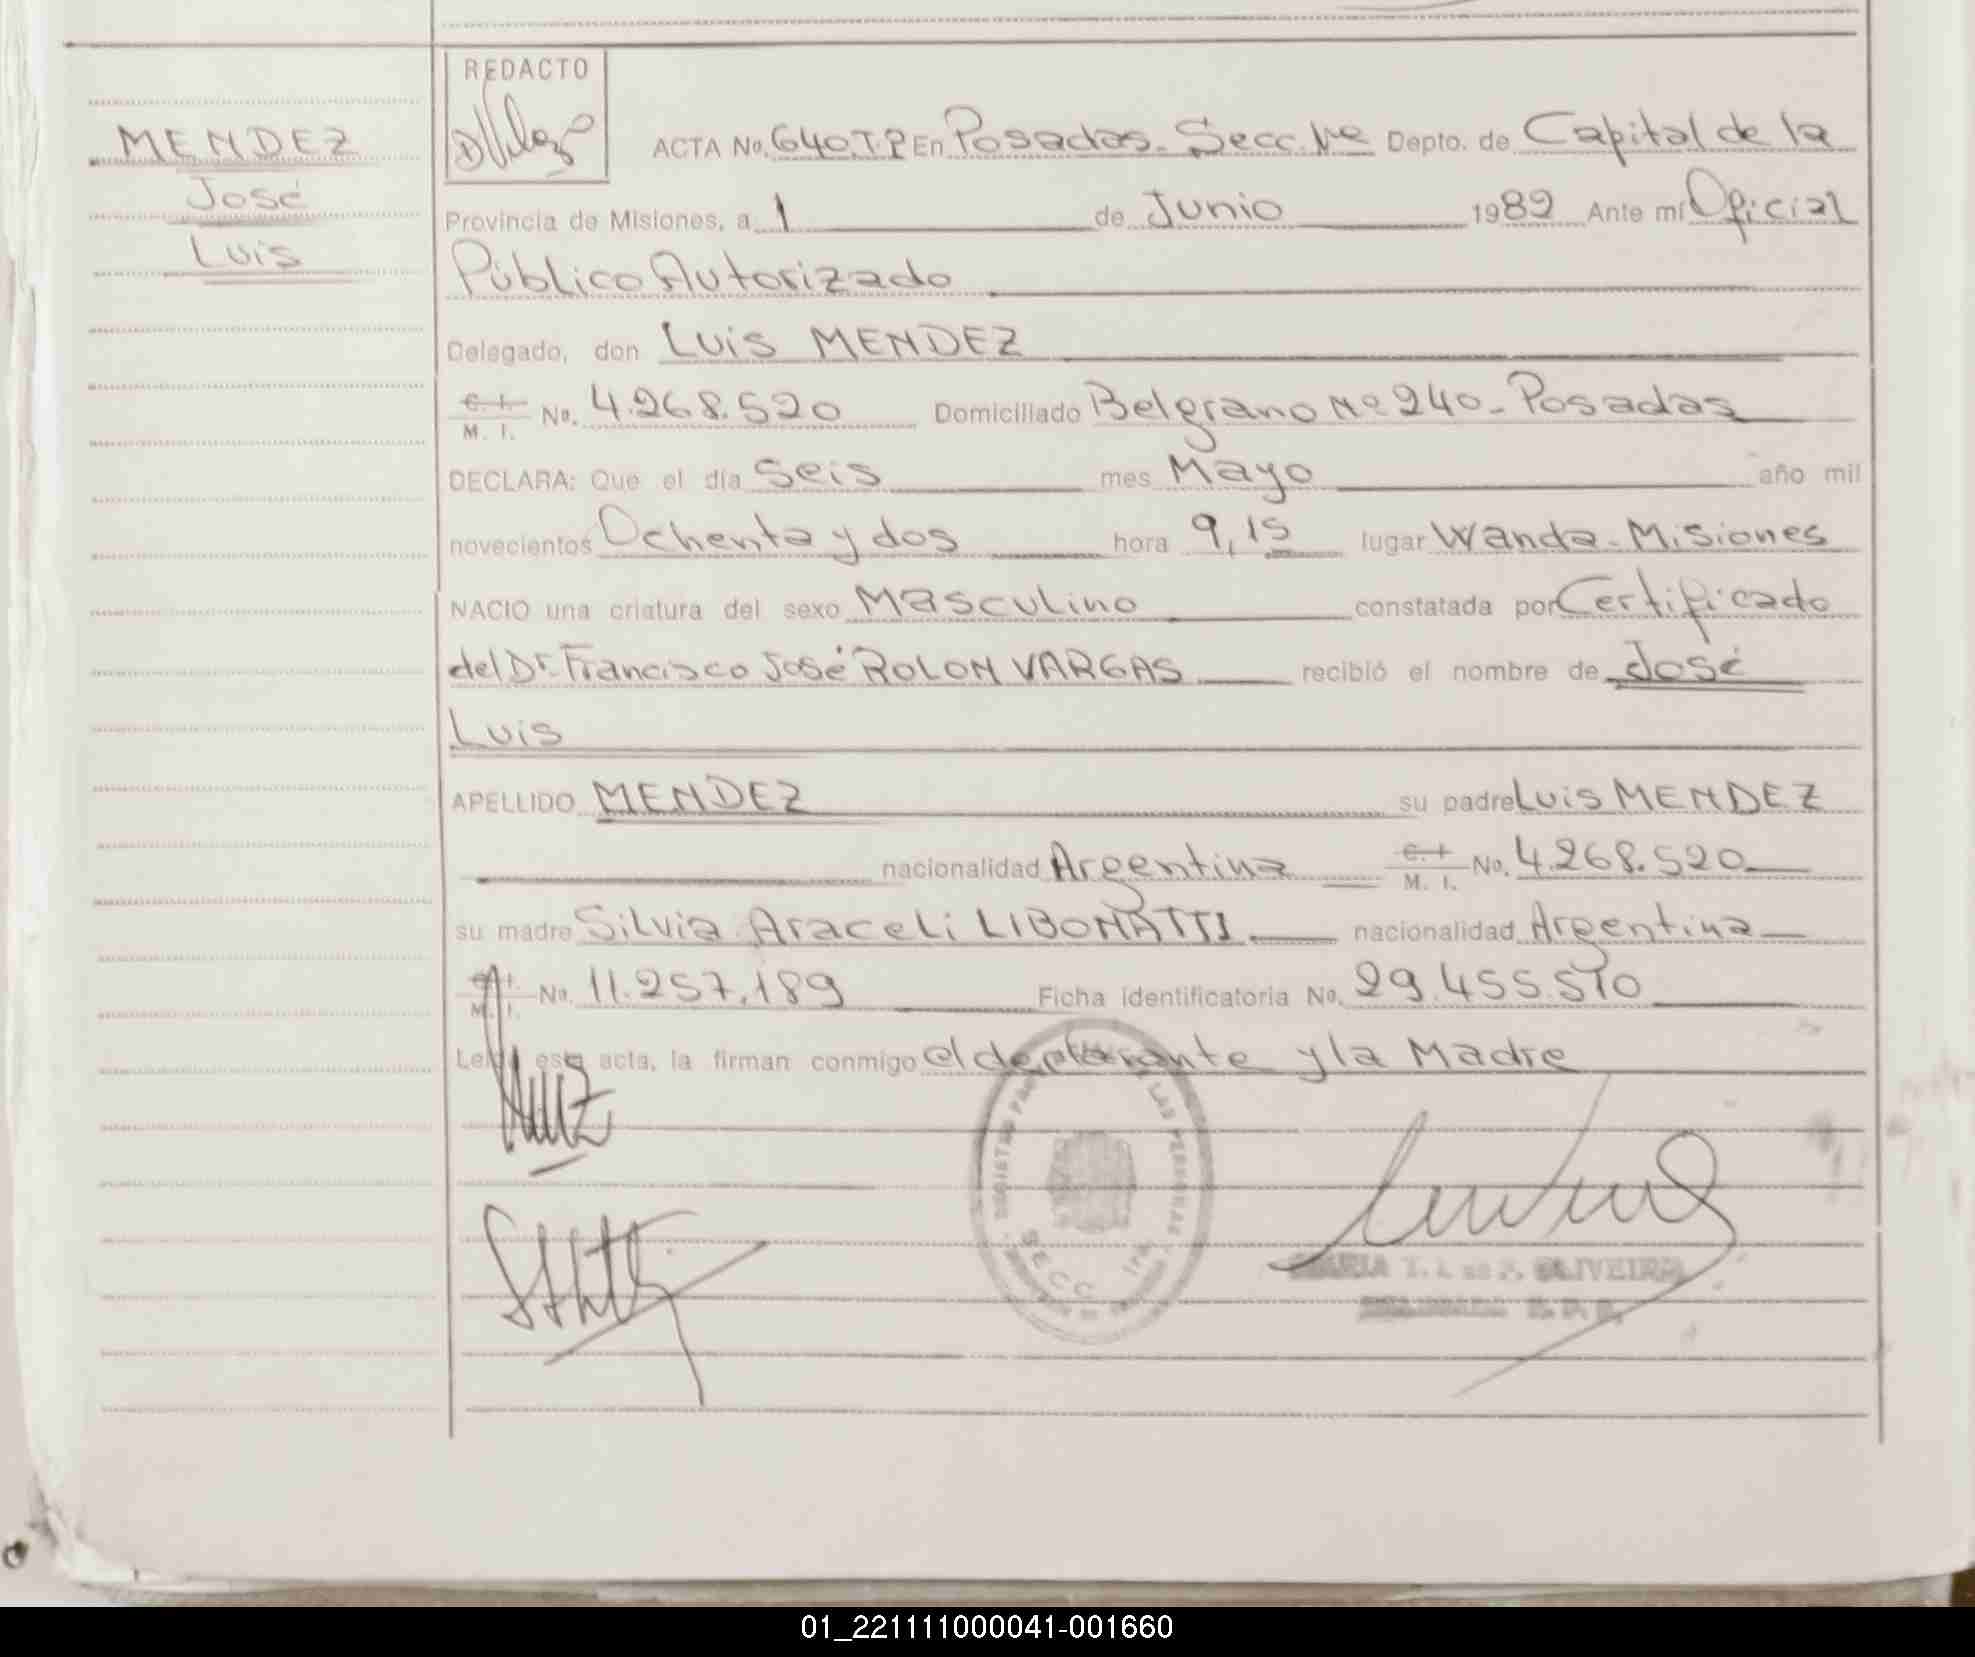 REDACTO
MENDEZ
José
Luis
ACTA No. 640.T.P En Posadas. Secc. 1ra Depto. de Capital de la
Provincia de Misiones, a 1 de Junio 1982 Ante mí Oficial
Público Autorizado
Delegado, don Luis MENDEZ
C. I. M. I. No. 4.268.520 Domiciliado Belgrano Nº 240 - Posadas
DECLARA: Que el día Seis mes Mayo año mil
novecientos Ochenta y dos hora 9,15 lugar Wanda - Misiones
NACIO una criatura del sexo Masculino constatada por Certificado
del Dr. Francisco José ROLON VARGAS recibió el nombre de José
Luis
APELLIDO MENDEZ su padre Luis MENDEZ
nacionalidad Argentina C. I. M. I. No. 4.268.520
su madre Silvia Araceli LIBONATTI nacionalidad Argentina
C. I. M. I. No. 11.257.189 Ficha identificatoria No. 29.455.510
Leída esta acta, la firman conmigo el declarante y la Madre
REGISTRO LAS PERSONAS
SECC. 1ra
MARIA T. OLIVEIRA
DELEGADA
01_221111000041-001660